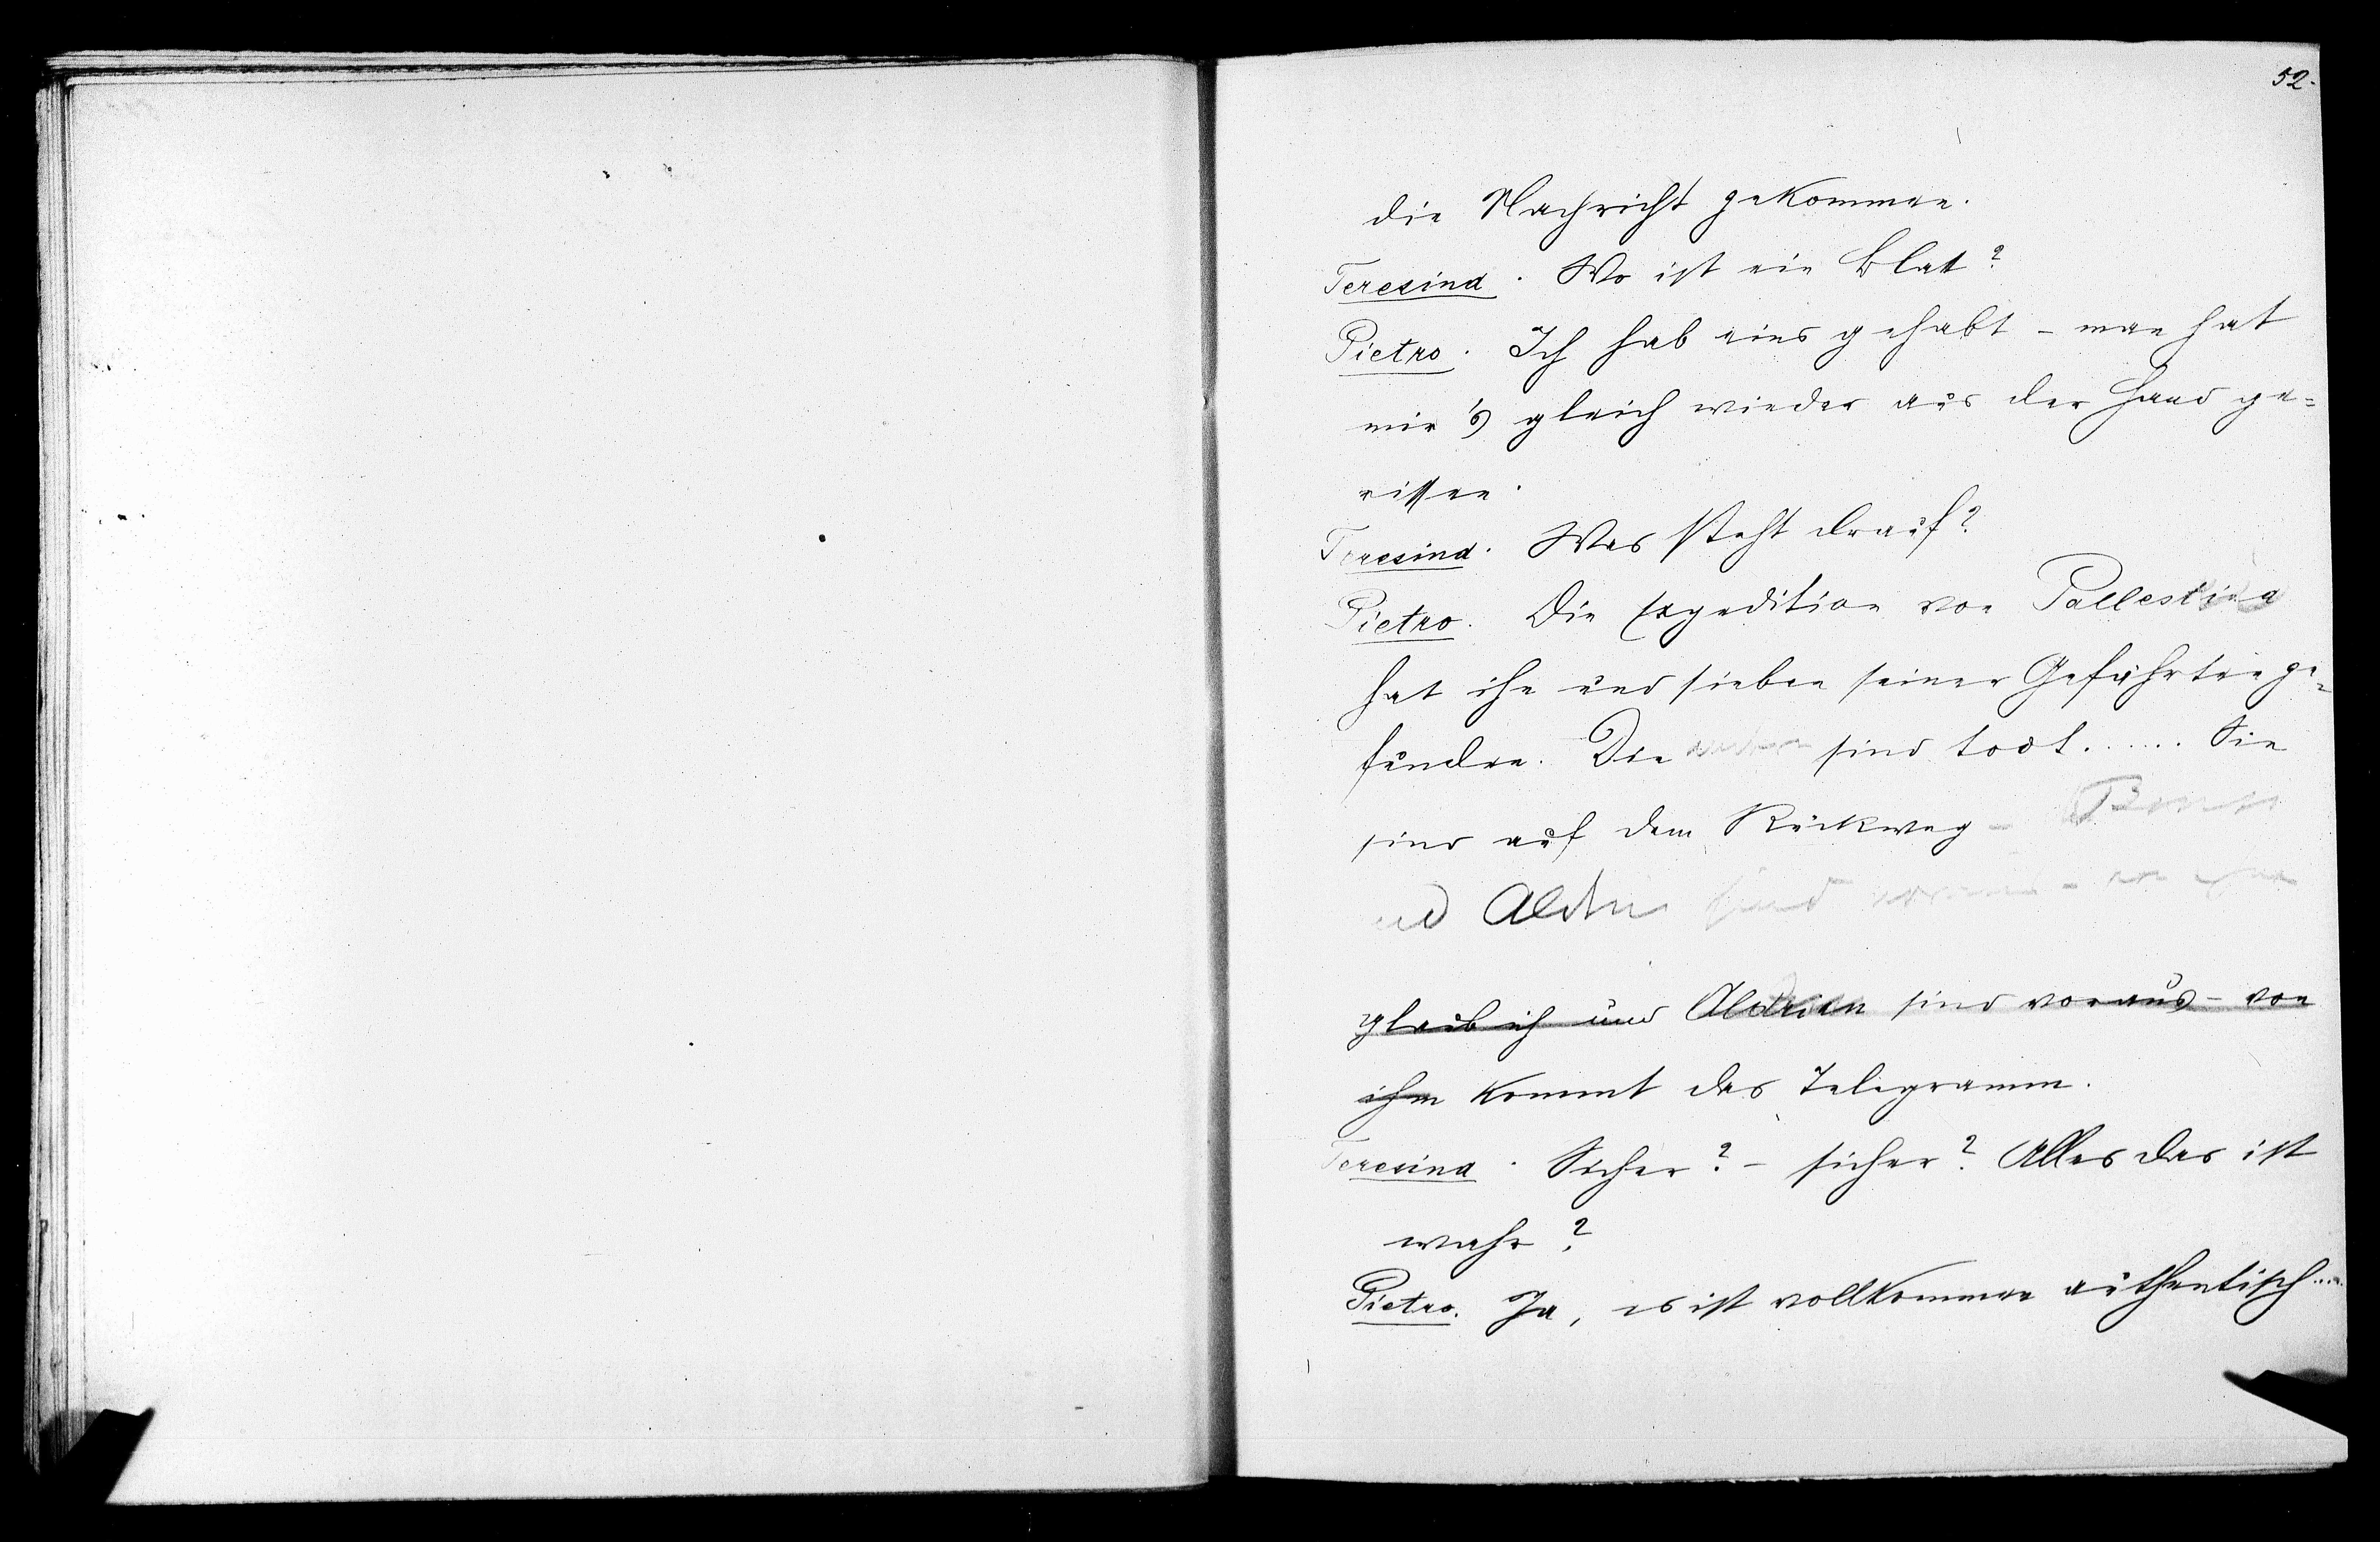 52.
die Nachricht gekommen.
Teresina. Wo ist ein Blatt?
Pietro. Ich hab eins gehabt - man hat
mir's gleich wieder aus der Hand ge=
rissen.
Teresina. Was steht drauf?
Pietro. Die Expedition von Pallestina
hat ihn und sieben seiner Gefährten ge=
funden. Die sind todt...... Sie
sind auf dem Rückweg -
und Aldin sind voraus -
glaub ich und Aldrian sind voraus - von
ihm kommt das Telegramm.
Teresina. Sicher? - sicher? Alles das ist
wahr?
Pietro. Ja, es ist vollkommen authentisch....